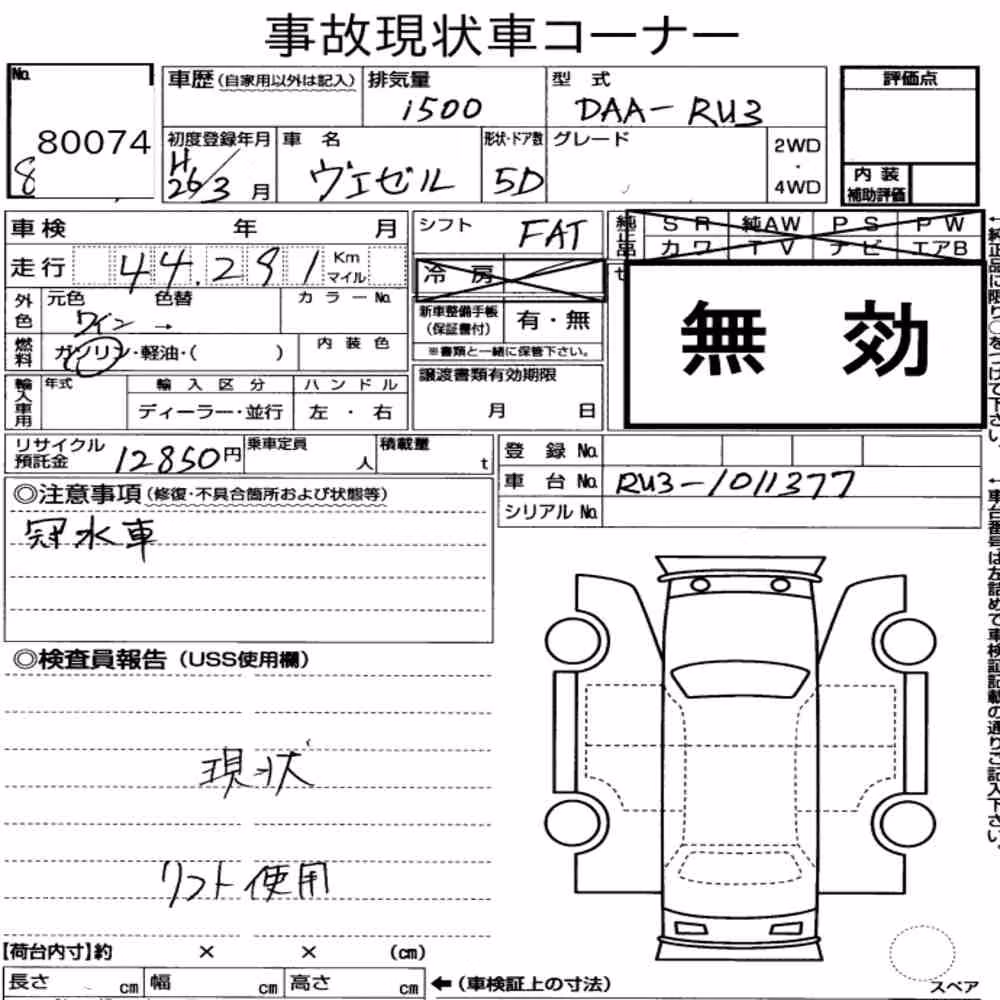 事故現状車コーナー
No. 80074
8
車歴(自家用以外は記入) 排気量 1500 型式 DAA-RU3
初度登録年月 H26/3月 車名 ヴェゼル 形状・ドア数 5D グレード 2WD・4WD
評価点
内装補助評価
車検 年 月
走行 44.291 Km マイル
外色 元色 ワイン 色替 → カラーNo.
燃料 ガソリン・軽油・( ) 内装色
輸入車用 年式 輸入区分 ディーラー・並行 ハンドル 左・右
シフト FAT
冷房
新車整備手帳(保証書付) 有・無
※書類と一緒に保管下さい。
譲渡書類有効期限
月 日
純正品 SR 純AW PS PW
カワ TV ナビ エアB
セ
無効
←純正品に限り○をつけて下さい。
リサイクル預託金 12850円 乗車定員 人 積載量 t
登録No.
車台No. RU3-1011377
シリアルNo.
←車台番号は左詰めで車検証記載の通りご記入下さい。
◎注意事項(修復・不具合箇所および状態等)
冠水車
◎検査員報告(USS使用欄)
現状
リフト使用
【荷台内寸】約 × × (cm)
長さ cm 幅 cm 高さ cm ←(車検証上の寸法)
スペア